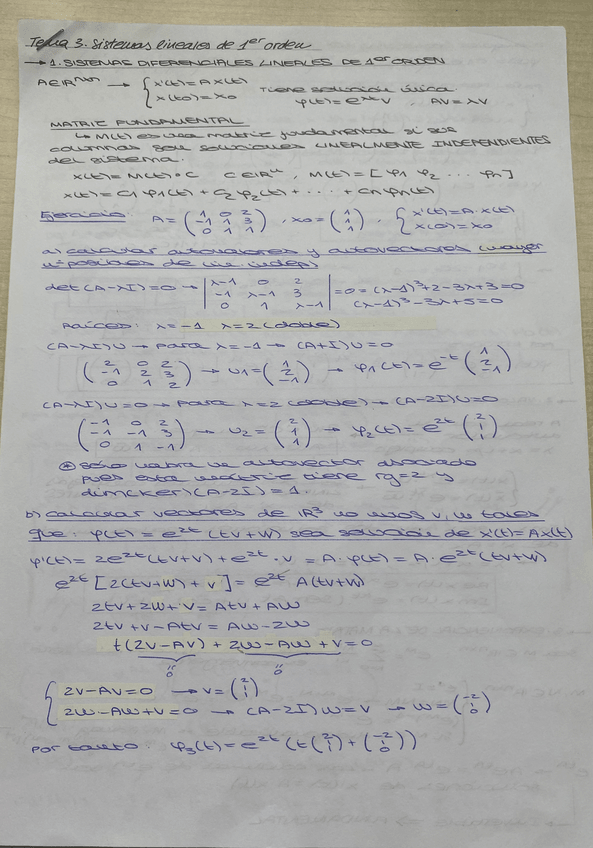 Tema 3. Sistemas lineales de 1er orden
→ 1. SISTEMAS DIFERENCIALES LINEALES DE 1er ORDEN
A∈R^{nxn} → { x'(t)=A x(t) x(t0)=x0 Tiene solución única. φ(t)=e^{λt} v , Av=λv
MATRIZ FUNDAMENTAL
↳ M(t) es una matriz fundamental si sus
columnas son soluciones LINEALMENTE INDEPENDIENTES
del sistema.
x(t)=M(t)·C C∈R^n , M(t)=[φ1 φ2 ··· φn]
x(t)=C1 φ1(t)+C2 φ2(t)+···+Cn φn(t)
Ejercicio: A=(1 0 2; -1 1 3; 0 1 1), x0=(1; 1; 1), { x'(t)=A·x(t) x(0)=x0
a) calcular autovalores y autovectores (mayor
nº posibles de lin. indep)
det(A-λI)=0 → |λ-1 0 2; -1 λ-1 3; 0 1 λ-1| =0=(λ-1)^3+2-3λ+3=0
(λ-1)^3-3λ+5=0
Raíces: λ=-1 λ=2 (doble)
(A-λI)u → para λ=-1 → (A+I)u=0
(2 0 2; -1 2 3; 0 1 2) → u1=(1; 2; -1) → φ1(t)=e^{-t}(1; 2; -1)
(A-λI)u=0 → para λ=2 (doble) → (A-2I)u=0
(-1 0 2; -1 -1 3; 0 1 -1) → u2=(2; 1; 1) → φ2(t)=e^{2t}(2; 1; 1)
⊛ Sólo habrá un autovector asociado
pues esta matriz tiene rg=2 y
dim(ker)(A-2I)=1.
b) calcular vectores de R^3 no nulos v, w tales
que: φ(t)=e^{2t}(tv+w) sea solución de x'(t)=Ax(t)
φ'(t)=2e^{2t}(tv+w)+e^{2t}·v = A·φ(t)=A·e^{2t}(tv+w)
e^{2t}[2(tv+w)+v]=e^{2t}A(tv+w)
2tv+2w+v=Atv+Aw
2tv+v-Atv=Aw-2w
t(2v-Av)+2w-Aw+v=0
0 0
{ 2v-Av=0 → v=(2; 1; 1)
2w-Aw+v=0 → (A-2I)w=v → w=(-2; 1; 0)
Por tanto: φ3(t)=e^{2t}(t(2; 1; 1)+(-2; 1; 0))